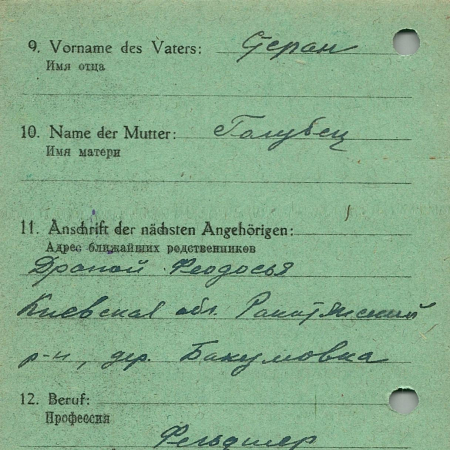 9. Vorname des Vaters: Степан
Имя отца
10. Name der Mutter: Голубец
Имя матери
11. Anschrift der nächsten Angehörigen:
Адрес ближайших родственников
Драной Феодосья
Киевская обл. Ракитянский
р-н, дер. Бакумовка
12. Beruf:
Профессия
Фельдшер